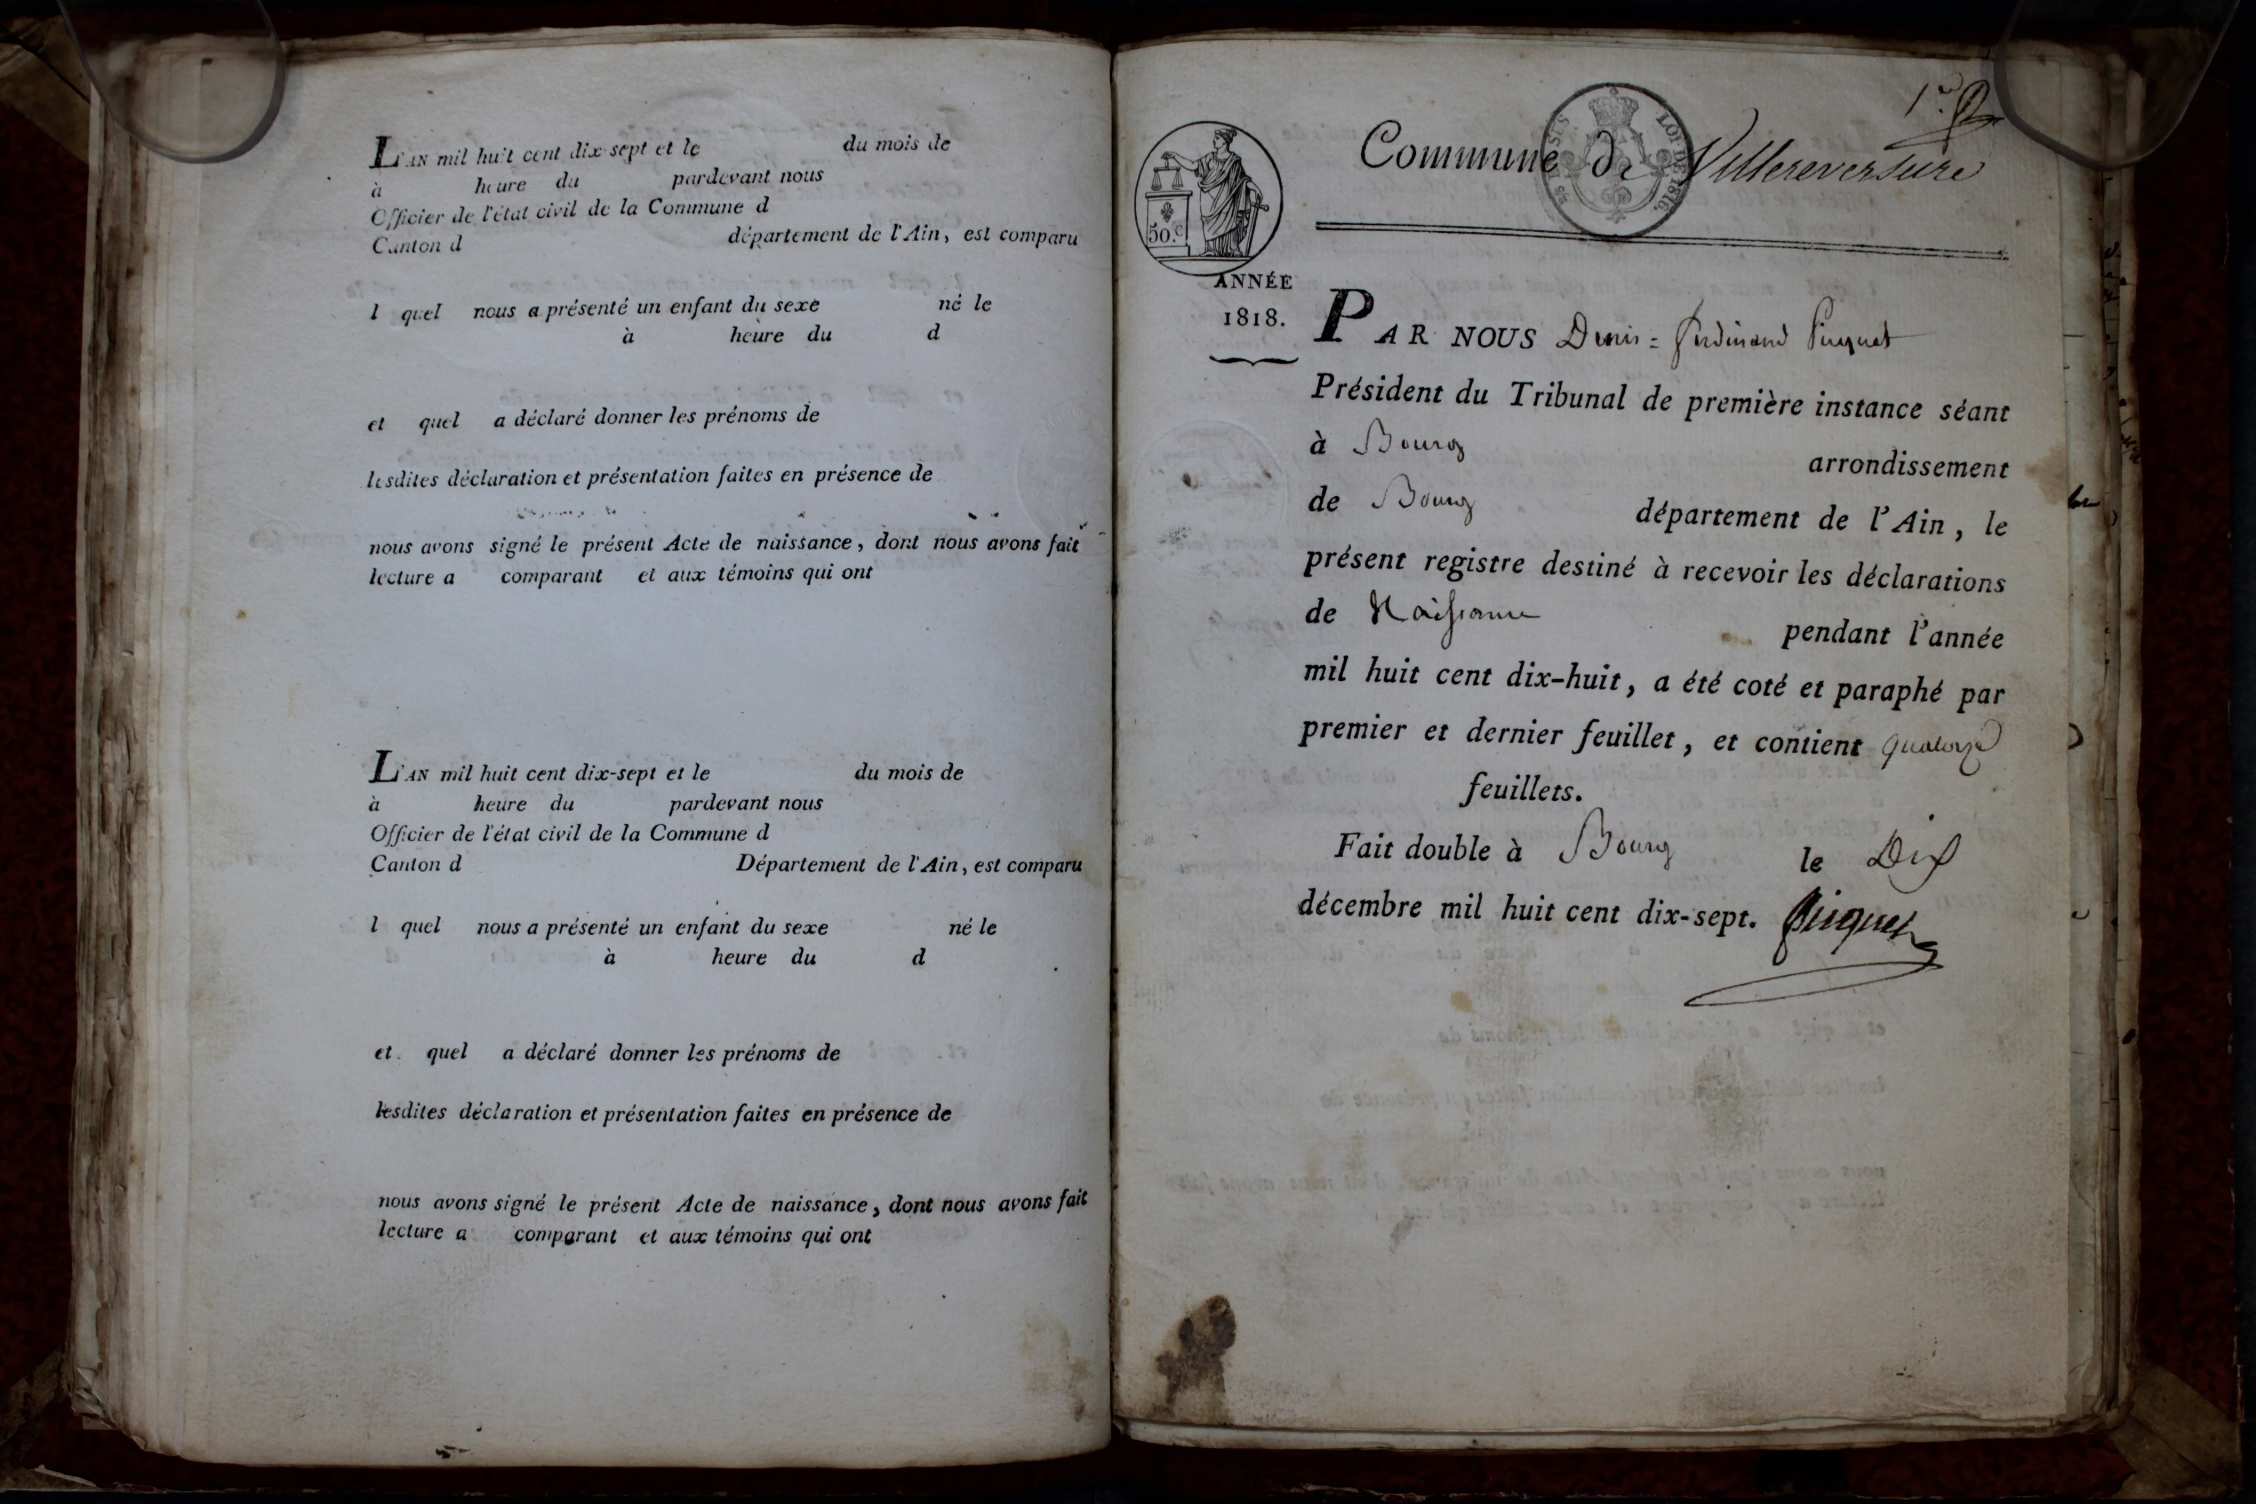 L'AN mil huit cent dix-sept et le du mois de
à heure du pardevant nous
Officier de l'état civil de la Commune d
Canton d département de l'Ain, est comparu
l quel nous a présenté un enfant du sexe né le
à heure du d
et quel a déclaré donner les prénoms de
lesdites déclaration et présentation faites en présence de
nous avons signé le présent Acte de naissance, dont nous avons fait
lecture a comparant et aux témoins qui ont
L'AN mil huit cent dix-sept et le du mois de
à heure du pardevant nous
Officier de l'état civil de la Commune d
Canton d Département de l'Ain, est comparu
l quel nous a présenté un enfant du sexe né le
à heure du d
et quel a déclaré donner les prénoms de
lesdites déclaration et présentation faites en présence de
nous avons signé le présent Acte de naissance, dont nous avons fait
lecture a comparant et aux témoins qui ont
1er
Commune de Villereversure
LOI DE 1816.
50.c
ANNÉE
1818.
PAR NOUS Denis = ferdinand Picquet
Président du Tribunal de première instance séant
à Bourg arrondissement
de Bourg département de l'Ain, le
présent registre destiné à recevoir les déclarations
de Naissance pendant l'année
mil huit cent dix-huit, a été coté et paraphé par
premier et dernier feuillet, et contient quatorze
feuillets.
Fait double à Bourg le Dix
décembre mil huit cent dix-sept. Picquet